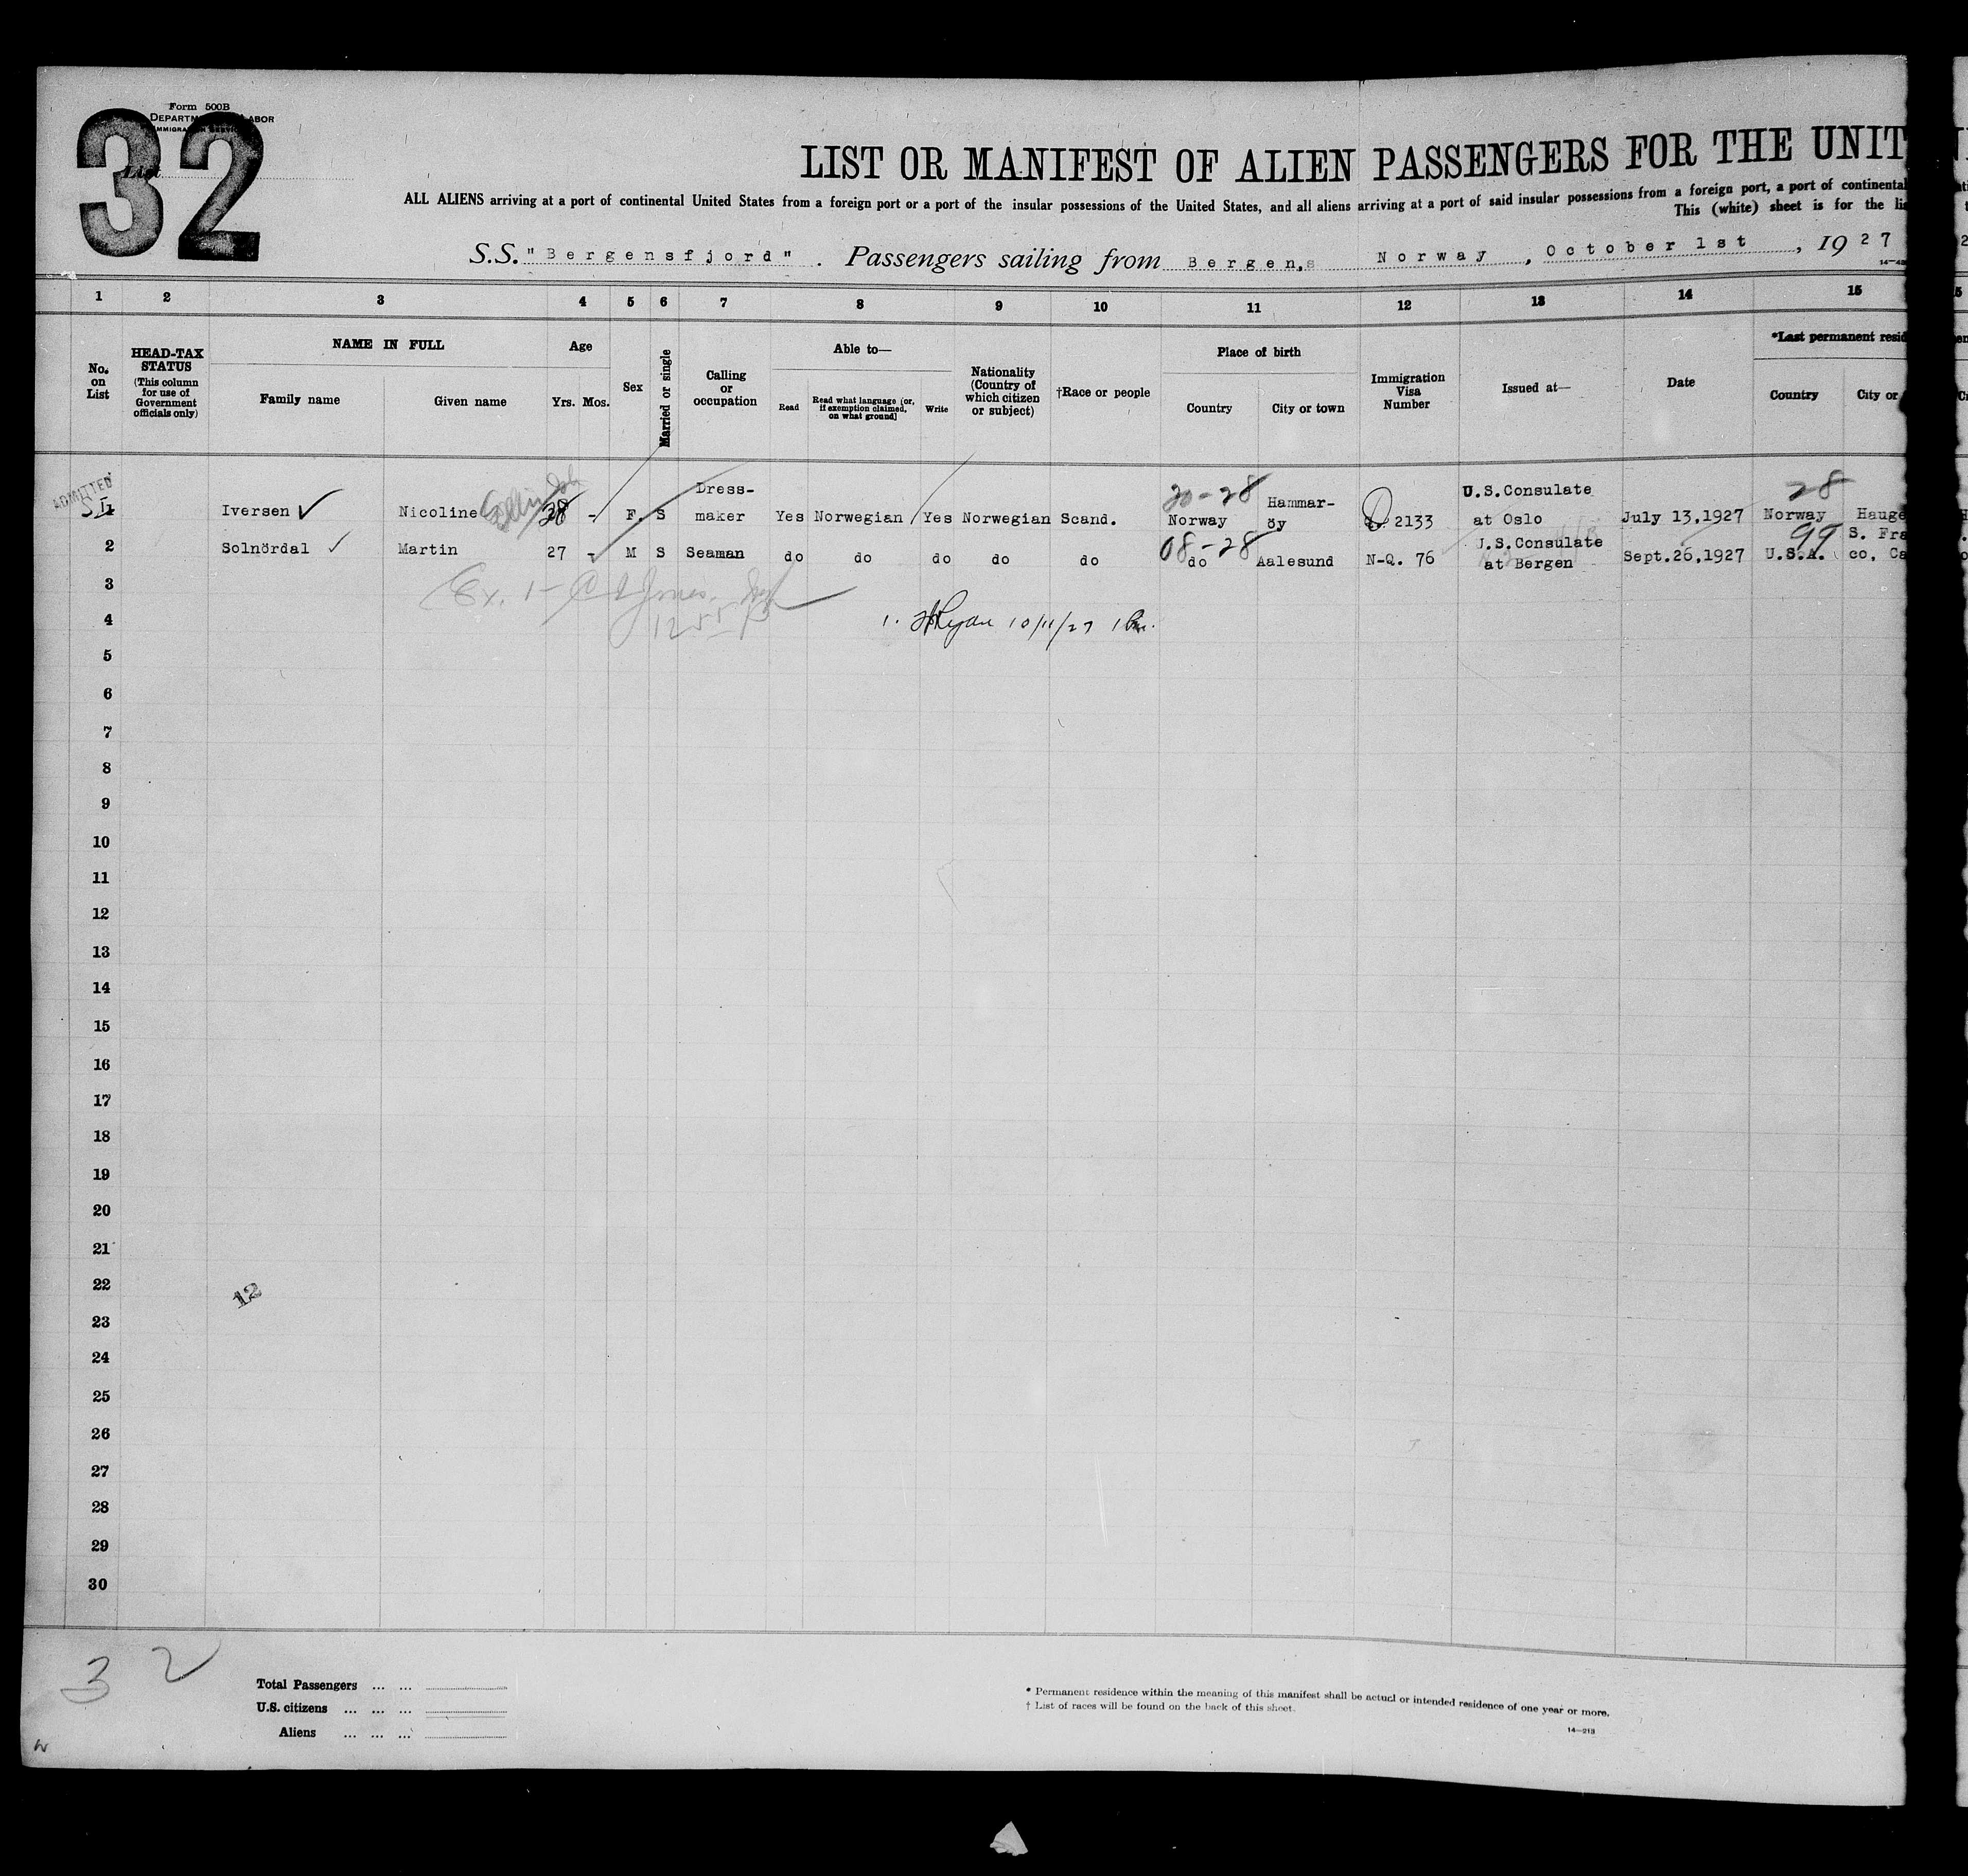 Form 500B
DEPARTMENT LABOR
IMMIGRATION SERVICE
32
List
LIST OR MANIFEST OF ALIEN PASSENGERS FOR THE UNIT
ALL ALIENS arriving at a port of continental United States from a foreign port or a port of the insular possessions of the United States, and all aliens arriving at a port of said insular possessions from a foreign port, a port of continental
This (white) sheet is for the lis
S.S. "Bergensfjord". Passengers sailing from Bergen,s Norway, October 1st, 1927
1 2 3 4 5 6 7 8 9 10 11 12 13 14 15
No. on List
HEAD-TAX STATUS (This column for use of Government officials only)
NAME IN FULL
Family name Given name
Age
Yrs. Mos.
Sex
Married or single
Calling or occupation
Able to—
Read
Read what language (or, if exemption claimed, on what ground)
Write
Nationality (Country of which citizen or subject)
†Race or people
Place of birth
Country City or town
Immigration Visa Number
Issued at—
Date
*Last permanent resid
Country City or
ADMITTED
1 Iversen Nicoline 28 - F. S Dress-maker Yes Norwegian Yes Norwegian Scand. 20-28 Norway Hammar-öy Q. 2133 U.S.Consulate at Oslo July 13,1927 28 Norway Hauge
2 Solnördal Martin 27 - M S Seaman do do do do do 08-28 do Aalesund N-Q. 76 U.S.Consulate at Bergen Sept.26,1927 99 U.S.A. S. Fra co, Ca
3
4 1. Ryan 10/11/27
5
6
7
8
9
10
11
12
13
14
15
16
17
18
19
20
21
22
12
23
24
25
26
27
28
29
30
32
Total Passengers ... ...
U.S. citizens ... ... ...
Aliens ... ... ...
* Permanent residence within the meaning of this manifest shall be actual or intended residence of one year or more.
† List of races will be found on the back of this sheet.
14—213